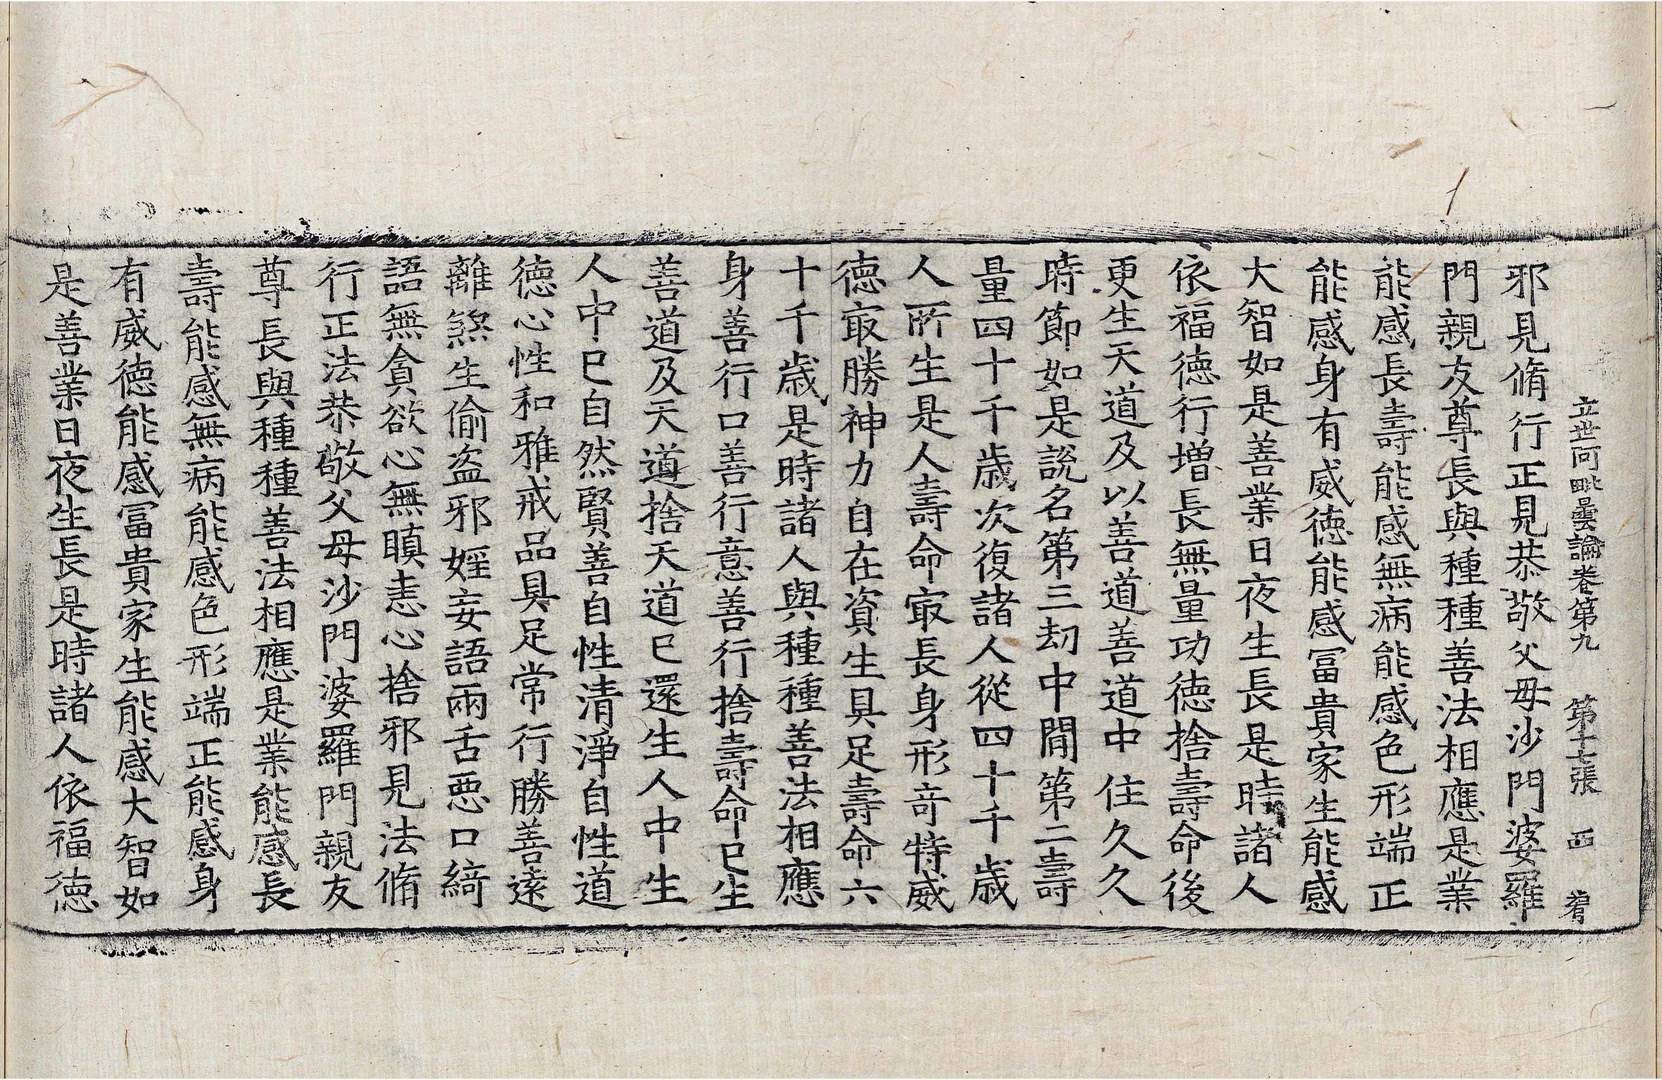 立世阿毗曇論卷第九 第十七張 西
邪見脩行正見恭敬父母沙門婆羅
門親友尊長與種種善法相應是業
能感長壽能感無病能感色形端正
能感身有威德能感冨貴家生能感
大智如是善業日夜生長是時諸人
依福德行增長無量功德捨壽命後
更生天道及以善道善道中住久久
時節如是說名第三刼中間第二壽
量四十千歲次復諸人從四十千歲
人所生是人壽命㝡長身形竒特威
德㝡勝神力自在資生具足壽命六
十千歲是時諸人與種種善法相應
身善行口善行意善行捨壽命已生
善道及天道捨天道已還生人中生
人中已自然賢善自性清淨自性道
德心性和雅戒品具足常行勝善遠
離煞生偷盗邪婬妄語兩舌惡口綺
語無貪欲心無瞋恚心捨邪見法脩
行正法恭敬父母沙門婆羅門親友
尊長與種種善法相應是業能感長
壽能感無病能感色形端正能感身
有威德能感冨貴家生能感大智如
是善業日夜生長是時諸人依福德